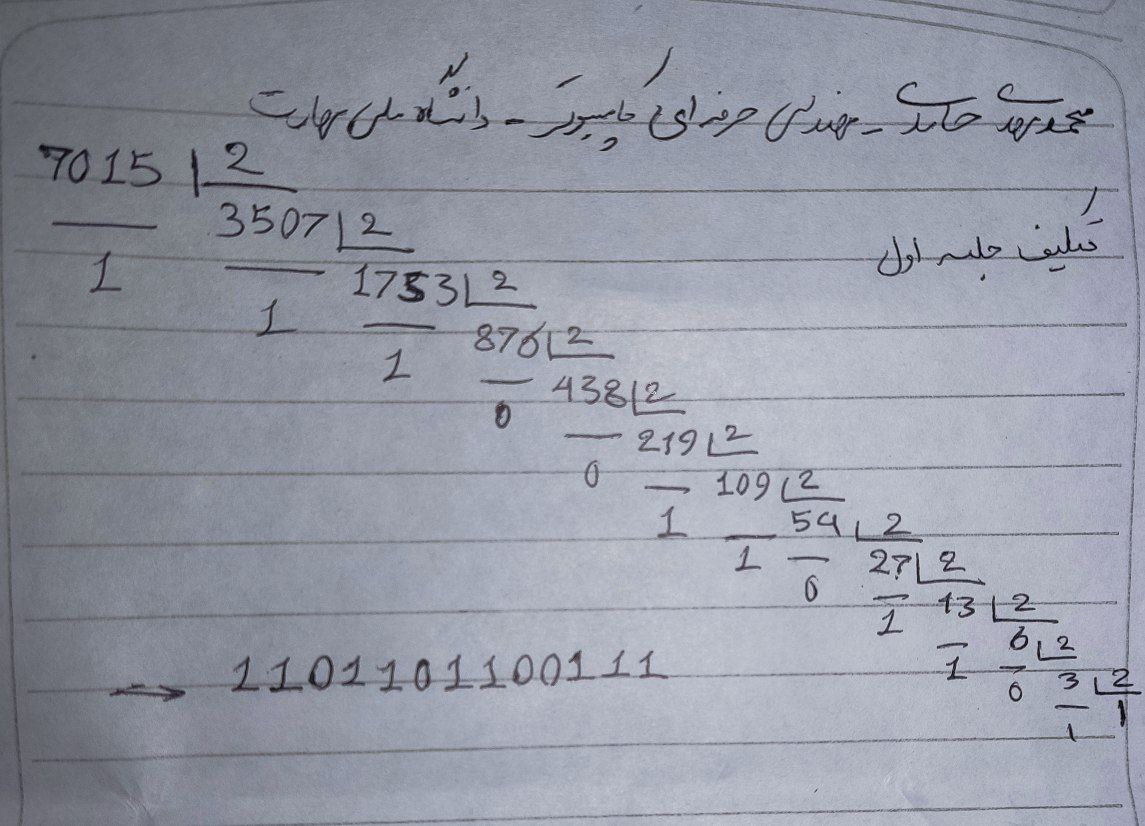 محمدمهدی حامدی - مهندسی حرفه‌ای کامپیوتر - دانشگاه ملی مهارت
تکلیف جلسه اول
7015 2
3507 2
1 1753 2
1 876 2
1 438 2
0 219 2
0 109 2
1 54 2
1 27 2
0 13 2
1 6 2
1 3 2
0 1
1
→ 1101101100111